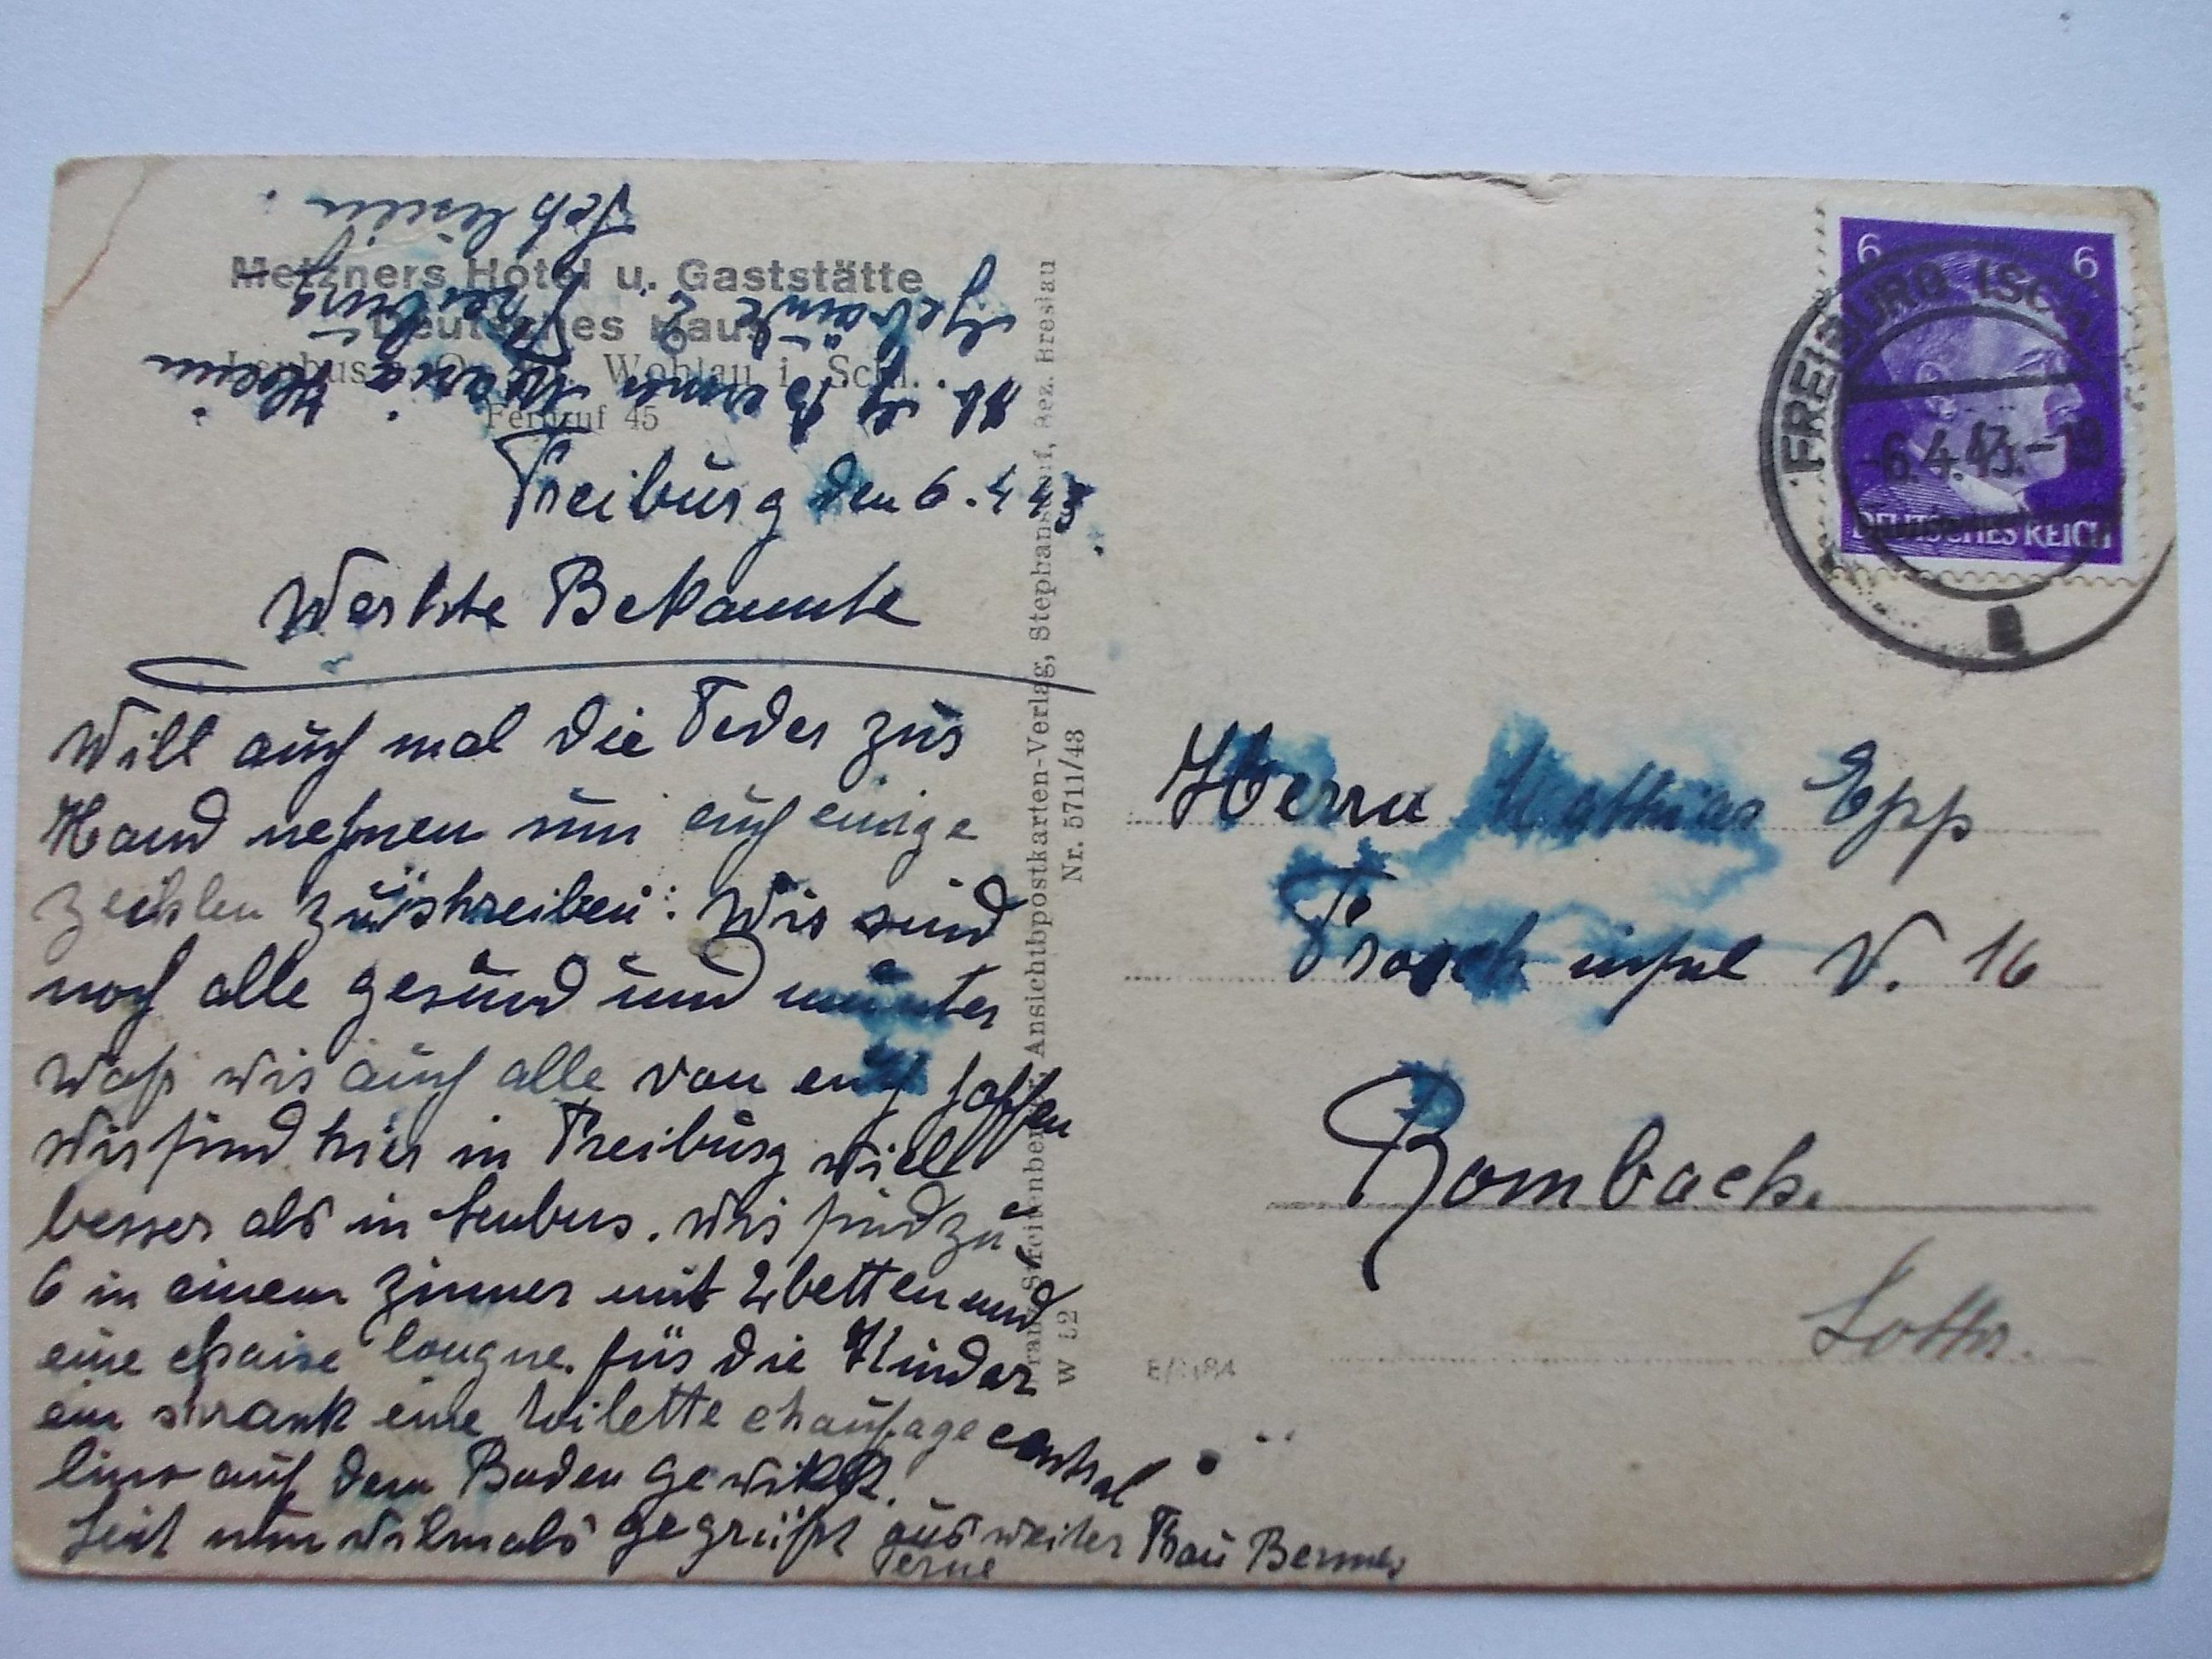 Metzners Hotel u. Gaststätte
Deutsches Haus
Leubus a. Oder Wohlau i. Schl.
Fernruf 45
Ab.
Maria Klein
Gebäude 2
Freiburg
Schlesien.
Freiburg den 6. 4 43.
Werhte Bekannte
Will auch mal die Feder zur
Hand nehmen um euch einige
Zeihlen zu schreiben: Wir sind
noch alle gesund und munter
Was wir auch alle von euch hoffen
Wir sind hier in Freiburg viell
besser als in Leubus. Wir sind zu
6 in einem Zimmer mit 2 betten und
eine chaise longue. für die Kinder
ein schrank eine toilette chaufage central
lino auf dem Boden gewikst.
Seit nun vilmals gegrüßt aus weiter Frau Bermes
Ferne
Herrn Matthias Epp
Frosch insel V. 16
Rombach.
Lothr.
Franz Streitenberger, Ansichtspostkarten-Verlag, Stephansdorf, Bez. Breslau
Nr. 5711/43
W 52
6 6
DEUTSCHES REICH
FREIBURG (SCHL
-6.4.43.-19
a